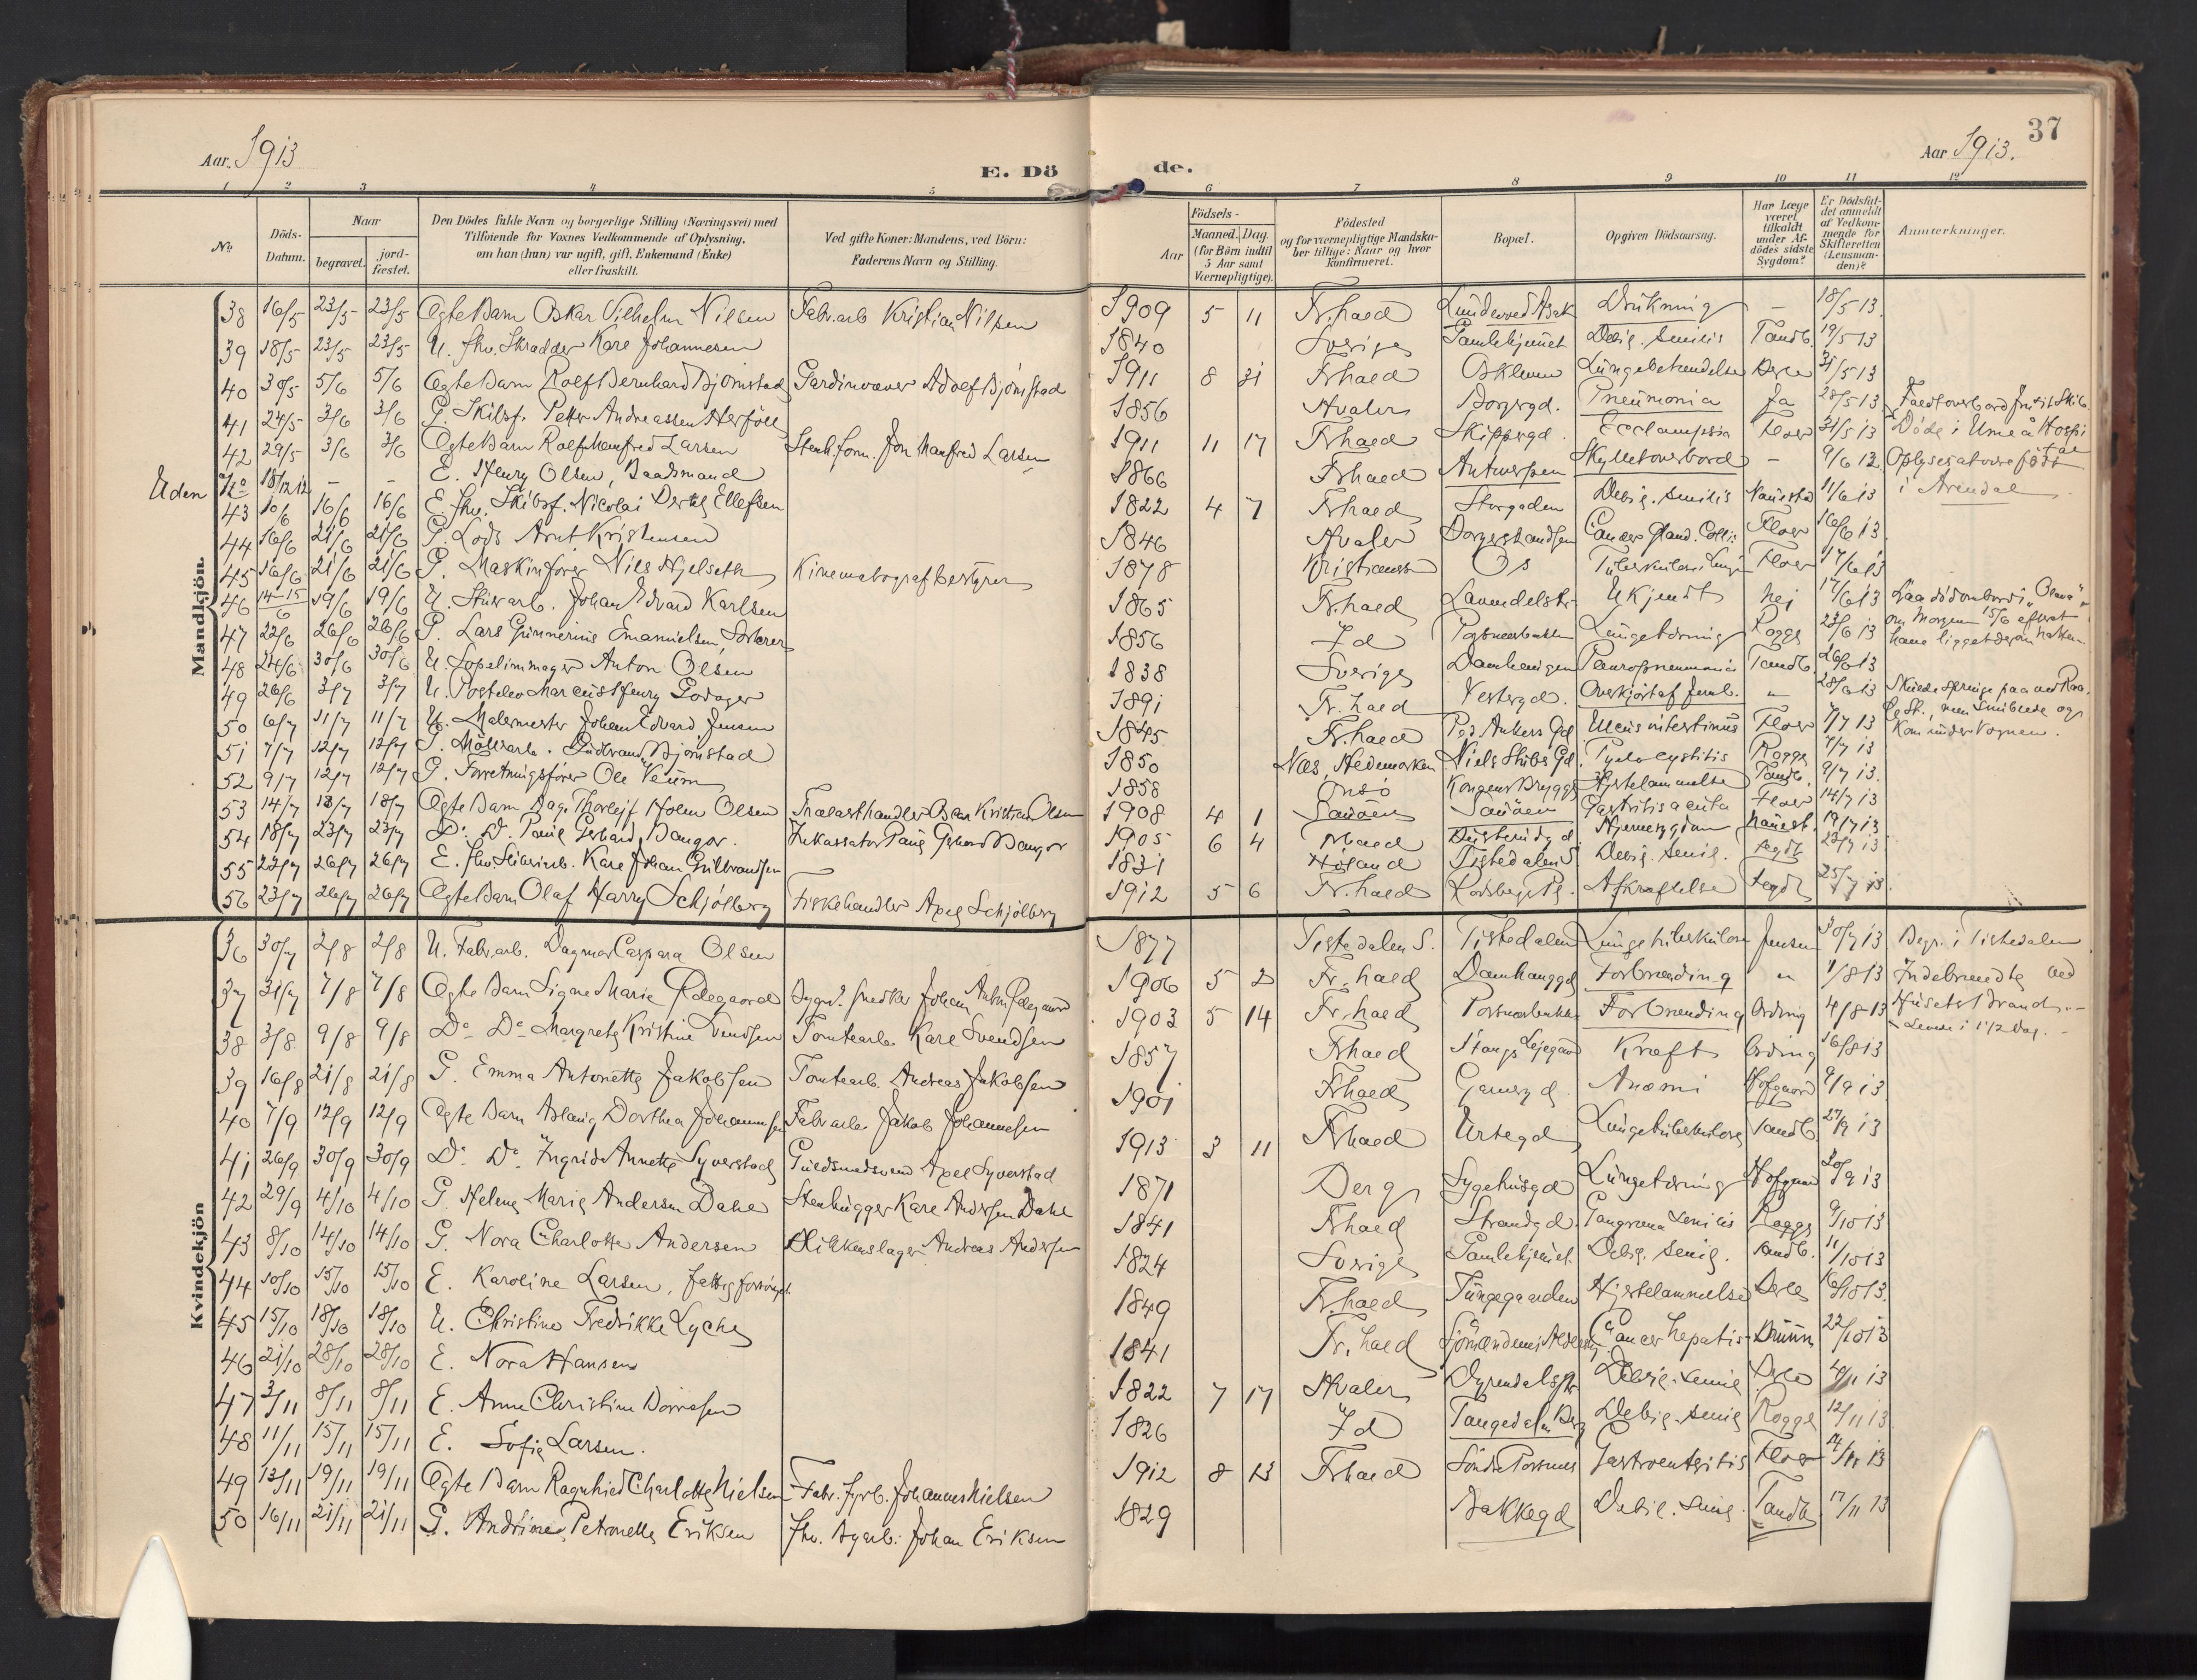 37
Aar. 1913
E. Dö
de.
Aar 1913.
1 2 3 4 5 6 7 8 9 10 11 12
No
Döds-Datum.
Naar
begravet.
jord-fæstet.
Den Dödes fulde Navn og borgerlige Stilling (Næringsvei) med
Tilföiende for Voxnes Vedkommende af Oplysning,
om han (hun) var ugift, gift, Enkemand (Enke)
eller fraskilt.
Ved gifte Koner: Mandens, ved Börn:
Faderens Navn og Stilling.
Födsels-
Aar
Maaned. Dag.
(for Börn indtil
5 Aar samt
Værnepligtige).
Födested
og for værnepligtige Mandska-
ber tillige: Naar og hvor
konfirmeret.
Bopæl.
Opgiven Dödsaarsag.
Har Læge
været
tilkaldt
under Af-
dödes sidste
Sygdom?
Er Dödsfal-
det anmeldt
af Vedkom-
mende for
Skifteretten
(Lensman-
den)?
Anmærkninger.
Mandkjön.
38 16/5 23/5 23/5 Ægte Barn Oskar Vilhelm Nilsen Fabr.arb Kristian Nilsen 1909 5 11 Fr.hald Drukning – 18/5 13.
39 18/5 23/5 23/5 U. fhv. Skrædder Karl Johannesen 1840 Sverige Gamlehjemmet Debil. senilis Tandb. 19/5 13
40 30/5 5/6 5/6 Ægte Barn Rolf Bernhard Bjørnstad Gardinvæver Adolf Bjørnstad 1911 8 31 Frhald Oskleven Lungebetændelse 31/5 13
41 24/5 3/6 3/6 G. Skibsf. Petter Andreassen Herføll 1856 Hvaler Borgergd. Pneumonia Ja 28/5 13 Faldt overbord fra sit Skib.
42 29/5 3/6 3/6 Ægte Barn Rolf Manfred Larsen Stenh.form. Jon Manfred Larsen 1911 11 17 Frhald Skippergd. Ecclampsia Floer 31/5 13 Døde i Umeå Hospital
Uden No 18/12 12 – – E. Henry Olsen, Baadsmand 1866 Frhald Antwerpen Skyllet overbord – 9/6 13. Oplyses at være født
43 10/6 16/6 16/6 E. fhv. Skibsf. Nicolai Ellefsen 1822 4 7 Frhald Storgaden Debil. senilis 11/6 13 i Arendal
44 16/6 21/6 21/6 G. Lods Arnt Kristensen 1846 Hvaler Cancer Gland. Colli Floer 16/6 13.
45 16/6 21/6 21/6 G. Maskinfører Niels Hjelseth Kinematografbestyrer 1878 Os Floer 17/6 13
46 14-15/6 19/6 19/6 U. Stuvarb. Johan Edvard Karlsen 1865 Fr.hald Lavendelstr. Ukjendt nei 17/6 13 Laa død ombord i
47 22/6 26/6 26/6 G. Lars Grimmerius Emanuelsen, 1856 Id Lungetæring Rogge 23/6 13 om Morgenen 15/6 efter at have ligget der om natten.
48 24/6 30/6 30/6 U. Anton Olsen 1838 Sverige Tandb. 26/6 13
49 26/6 3/7 3/7 U. Postelev Marcus Henry Godager 1891 Fr.hald Vestergd. Overkjørt af Jernb. " 28/6 13 Skulde springe paa ved
50 6/7 11/7 11/7 U. Malermester Johan Edvard Jensen 1845 Fr.hald Ped Ankers Gd Ulcus intestinus Floer 7/7 13 men snublede og
51 7/7 12/7 12/7 G. Møllearb. Gudbrand Bjørnstad 1850 Næs, Hedemarken Niels Stubs Gd. Pyelocystitis Rogge 9/7 13 kom under Vognen.
52 9/7 12/7 12/7 G. Forretningsfører Ole Veum 1858 Onsø Kongens Brygge Hjertelammelse Tandb. 9/7 13.
53 14/7 18/7 18/7 Ægte Barn Dag Thorleif Holm Olsen Trælasthandler Oscar Kristian Olsen 1908 4 1 Sauøen Sauøen Gastritis acuta Floer 14/7 13
54 18/7 23/7 23/7 Do Do Paul Gerhard Bangor. Inkassator Paul Gerhard Bangor 1905 6 4 Frhald Hjernesygdom 19/7 13
55 22/7 26/7 26/7 E. fhv. Karl Johan Gulbrandsen 1831 Høland Tistedalen S. Debil. senil. 23/7 13.
56 23/7 26/7 26/7 Ægte Barn Olaf Harry Schjølberg Fiskehandler Axel Schjølberg 1912 5 6 Fr.hald Afkræftelse 25/7 13.
Kvindekjön
36 30/7 2/8 2/8 U. Fabr.arb. Dagmar Caspara Olsen 1877 Tistedalen S. Tistedalen Lungetuberkulose Jensen 30/7 13 Begr. i Tistedalen
37 31/7 7/8 7/8 Ægte Barn Signe Marie Ødegaard Snedker Johan Anton Ødegaard 1906 5 2 Fr.hald Damhaugd. Forbrænding " 1/8 13 Indebrændte ved
38 3/8. 9/8 9/8 Do Do Margrete Kristine Svendsen Tomtearb. Karl Svendsen 1903 5 14 Fr.hald Forbrænding Ording 4/8 13 Husets Brand. – Levede i 1 1/2 Dag. –
39 16/8 21/8 21/8 G. Emma Antonette Jakobsen Tomtearb. Andreas Jakobsen 1857 Frhald Stangs Leiegaard Kræft Ording 16/8 13
40 7/9 12/9 12/9 Ægte Barn Aslaug Dorthea Johannesen Fabr.arb. Jakob Johannesen 1901 Frhald Garvergd. Anæmi Hofgaard 9/9 13
41 26/9 30/9 30/9 Do Do Ingrid Annette Syverstad Guldsmedsvend Axel Syverstad 1913 3 11 Frhald Urtegd. Lungetuberkulose Tandb. 27/9 13
42 29/9 4/10 4/10 G. Helene Marie Andersen Dahl Stenhugger Karl Andersen Dahl 1871 Berg Sygehusgd Lungetæring Hofgaard 30/9 13
43 8/10 14/10 14/10 G. Nora Charlotte Andersen Blikkenslager Andreas Andersen 1841 Frhald Strandgd. Gangræna senilis Rogge 9/10 13
44 10/10 15/10 15/10 E. Karoline Larsen, fattigforsørget. 1824 Sverige Gamlehjemmet. Debil. senil. Tandb. 11/10 13
45 15/10 18/10 18/10 U. Christine Fredrikke Lyche 1849 Fr.hald Tungegaarden Hjertelammelse 16/10 13.
46 21/10 28/10 28/10 E. Nora Hansen 1841 Fr.hald Cancer hepatis 22/10 13
47 3/11 8/11 8/11 E. Anne Christine 1822 7 17 Hvaler Dyrendalsstr. Debil. senil 4/11 13
48 11/11 15/11 15/11 E. Sofie Larsen. 1826 Id Debil. senil Rogge 12/11 13
49 13/11 19/11 19/11 Ægte Barn Ragnhild Charlotte Nielsen Fabr. fyrb. Johannes Nielsen 1912 8 13 Frhald Gastroenteritis Floer 14/11 13
50 16/11 21/11 21/11 G. Andrine Petronelle Eriksen fhv. Johan Eriksen 1829 Bakkegd Debil. senil. Tandb. 17/11 13